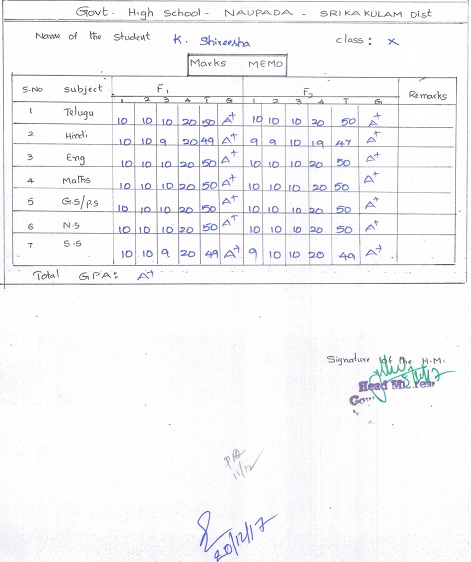 Govt. High School - NAUPADA - SRIKAKULAM Dist
Name of the Student K. Shireesha class: X
Marks MEMO
S.No subject F1 F2 Remarks
1 2 3 4 T G 1 2 3 4 T G
1 Telugu 10 10 10 20 50 A+ 10 10 10 20 50 A+
2 Hindi 10 10 9 20 49 A+ 9 9 10 19 47 A+
3 Eng 10 10 10 20 50 A+ 10 10 10 20 50 A+
4 Maths 10 10 10 20 50 A+ 10 10 10 20 50 A+
5 G.S/P.S 10 10 10 20 50 A+ 10 10 10 20 50 A+
6 N.S 10 10 10 20 50 A+ 10 10 10 20 50 A+
7 S.S 10 10 9 20 49 A+ 9 10 10 20 49 A+
Total GPA: A+
Signature of the H.M.
Head
11/12
20/12/17